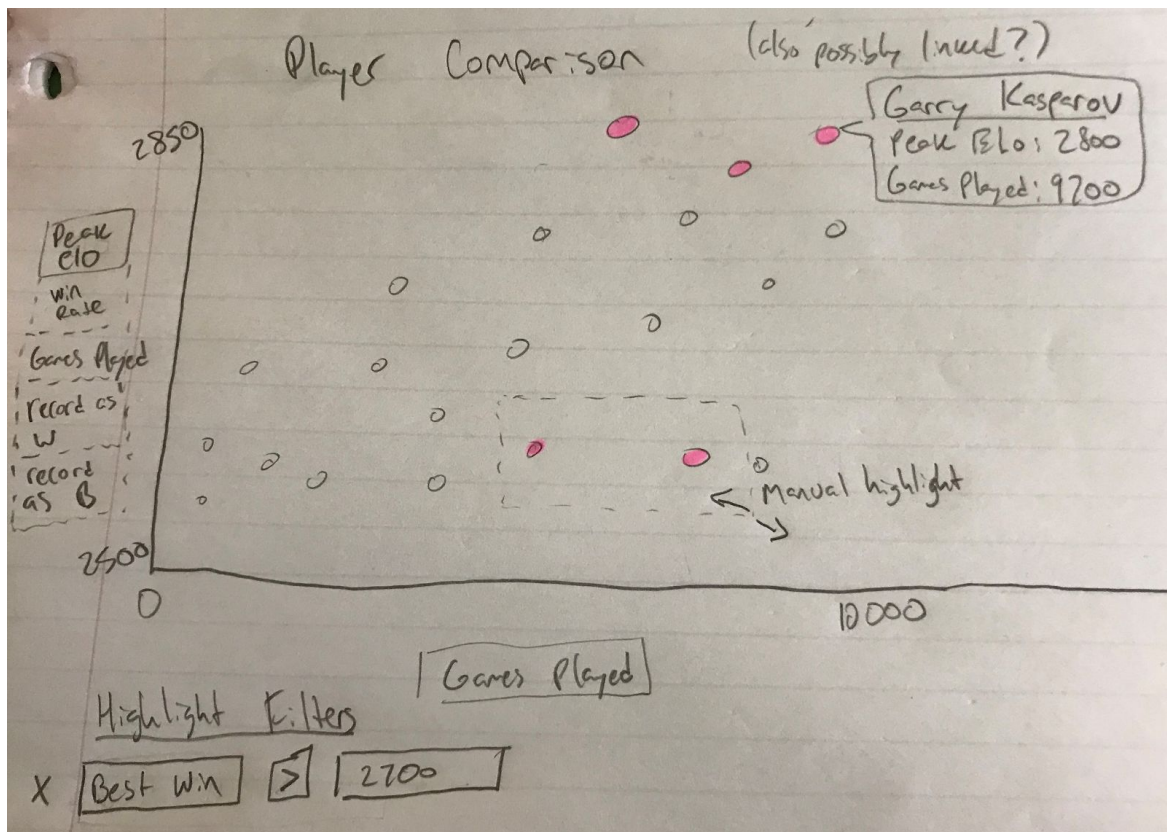 Player Comparison
(also possibly linked?)
Garry Kasparov
Peak Elo: 2800
Games Played: 9200
2850
Peak
elo
win
Rate
Games Played
record as
W
record
as B
Manual highlight
2500
0
10000
Games Played
Highlight Filters
X Best Win > 2700